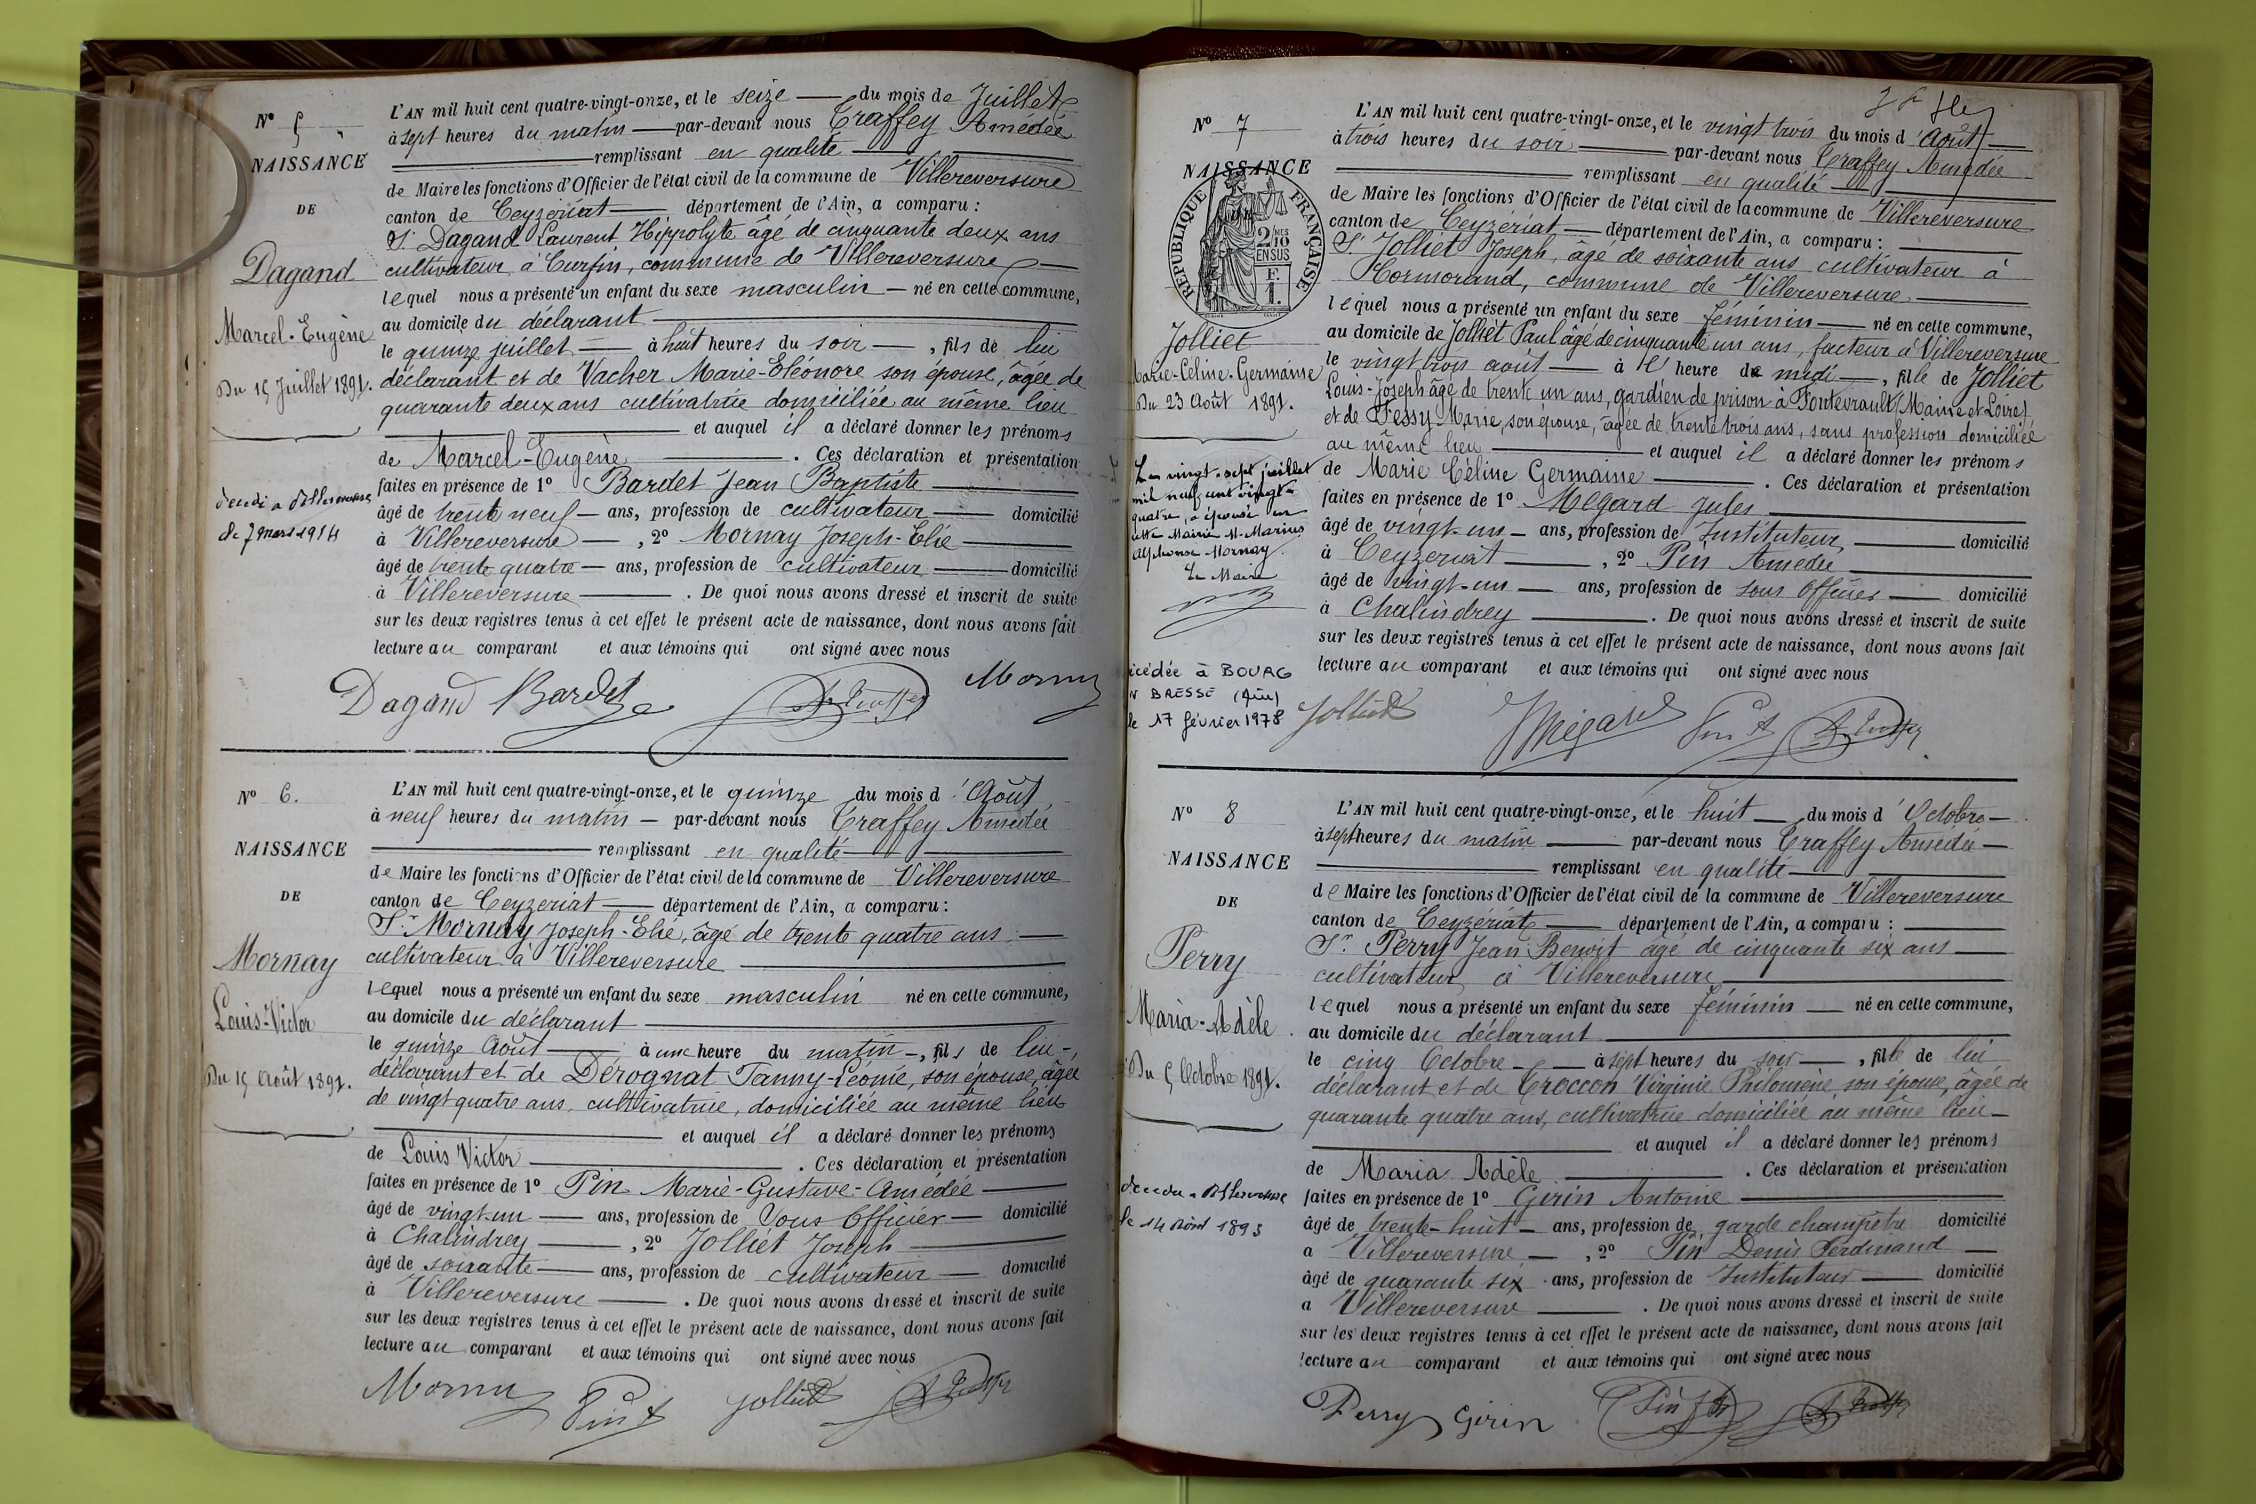 N° 5
NAISSANCE
DE
Dagand
Marcel-Eugène
Du 15 Juillet 1891.
le 7 mars 1914
L'AN mil huit cent quatre-vingt-onze, et le seize du mois de Juillet
à sept heures du matin par-devant nous Traffey Amédée
remplissant en qualité
de Maire les fonctions d'Officier de l'état civil de la commune de Villereversure
canton de Ceyzeriat département de l'Ain, a comparu :
Sr Dagand Laurent Hippolyte âgé de cinquante deux ans
cultivateur à Curfin, commune de Villereversure
lequel nous a présenté un enfant du sexe masculin né en cette commune,
au domicile du déclarant
le quinze juillet à huit heures du soir, fils de lui
déclarant et de Vacher Marie-Eléonore son épouse, âgée de
quarante deux ans cultivatrice domiciliée au même lieu
et auquel il a déclaré donner les prénoms
de Marcel-Eugène. Ces déclaration et présentation
faites en présence de 1° Bardet Jean Baptiste
âgé de trente neuf ans, profession de cultivateur domicilié
à Villereversure, 2° Mornay Joseph-Elie
âgé de trente quatre ans, profession de cultivateur domicilié
à Villereversure. De quoi nous avons dressé et inscrit de suite
sur les deux registres tenus à cet effet le présent acte de naissance, dont nous avons fait
lecture au comparant et aux témoins qui ont signé avec nous
Dagand Bardet Mornay
N° 6.
NAISSANCE
DE
Mornay
Louis-Victor
Du 15 Août 1891.
L'AN mil huit cent quatre-vingt-onze, et le quinze du mois d'Août
à neuf heures du matin par-devant nous Traffey Amédée
remplissant en qualité
de Maire les fonctions d'Officier de l'état civil de la commune de Villereversure
canton de Ceyzeriat département de l'Ain, a comparu :
Sr Mornay Joseph-Elie, âgé de trente quatre ans
cultivateur à Villereversure
lequel nous a présenté un enfant du sexe masculin né en cette commune,
au domicile du déclarant
le quinze Août à une heure du matin, fils de lui
déclarant et de Dérognat Fanny-Léonie, son épouse, âgée
de vingt quatre ans, cultivatrice, domiciliée au même lieu
et auquel il a déclaré donner les prénoms
de Louis Victor. Ces déclaration et présentation
faites en présence de 1° Pin Marie-Gustave-Amédée
âgé de vingt-un ans, profession de Sous Officier domicilié
à Chalindrey, 2° Jolliet Joseph
âgé de soixante ans, profession de cultivateur domicilié
à Villereversure. De quoi nous avons dressé et inscrit de suite
sur les deux registres tenus à cet effet le présent acte de naissance, dont nous avons fait
lecture au comparant et aux témoins qui ont signé avec nous
Mornay Pin Jolliet
N° 7
NAISSANCE
RÉPUBLIQUE FRANÇAISE
2/10
EN SUS
F.
1.
Jolliet
Marie-Céline-Germaine
Du 23 Août 1891.
Le vingt-sept juillet
mil neuf cent vingt-
quatre, a épousé en
cette Mairie M. Marius
Alphonse Mornay.
Le Maire
écédée à BOURG
N BRESSE (Ain)
le 17 février 1978
L'AN mil huit cent quatre-vingt-onze, et le vingt trois du mois d'Août
à trois heures du soir par-devant nous Traffey Amédée
remplissant en qualité
de Maire les fonctions d'Officier de l'état civil de la commune de Villereversure
canton de Ceyzériat département de l'Ain, a comparu :
Sr Jolliet Joseph, âgé de soixante ans cultivateur à
Hormorand, commune de Villereversure
lequel nous a présenté un enfant du sexe féminin né en cette commune,
au domicile de Jolliet Paul âgé de cinquante un ans, facteur à Villereversure
le vingt trois août à heure de midi, fille de Jolliet
Louis-Joseph âgé de trente un ans, gardien de prison à Fontevrault (Maine et Loire)
et de Fessy Marie, son épouse, âgée de trente trois ans, sans profession domiciliée
au même lieu et auquel il a déclaré donner les prénoms
de Marie Céline Germaine. Ces déclaration et présentation
faites en présence de 1° Mégard Jules
âgé de vingt-un ans, profession de Instituteur domicilié
à Ceyzeriat, 2° Pin Amédée
âgé de vingt-un ans, profession de sous officier domicilié
à Chalindrey. De quoi nous avons dressé et inscrit de suite
sur les deux registres tenus à cet effet le présent acte de naissance, dont nous avons fait
lecture au comparant et aux témoins qui ont signé avec nous
Jolliet JMégard Pin
N° 8
NAISSANCE
DE
Perry
Maria-Adèle
Du 5 Octobre 1891.
le 14 Août 1893
L'AN mil huit cent quatre-vingt-onze, et le huit du mois d'Octobre
à sept heures du matin par-devant nous Traffey Amédée
remplissant en qualité
de Maire les fonctions d'Officier de l'état civil de la commune de Villereversure
canton de Ceyzériat département de l'Ain, a comparu :
Sr Perry Jean Benoit âgé de cinquante six ans
cultivateur à Villereversure
lequel nous a présenté un enfant du sexe féminin né en cette commune,
au domicile du déclarant
le cinq Octobre à sept heures du soir, fille de lui
déclarant et de Croccon Virginie Philomène, son épouse, âgée de
quarante quatre ans, cultivatrice domiciliée au même lieu
et auquel il a déclaré donner les prénoms
de Maria Adèle. Ces déclaration et présentation
faites en présence de 1° Girin Antoine
âgé de trente-huit ans, profession de garde champêtre domicilié
a Villereversure, 2° Pin Denis Ferdinand
âgé de quarante six ans, profession de Instituteur domicilié
a Villereversure. De quoi nous avons dressé et inscrit de suite
sur les deux registres tenus à cet effet le présent acte de naissance, dont nous avons fait
lecture au comparant et aux témoins qui ont signé avec nous
Perry Girin Pin